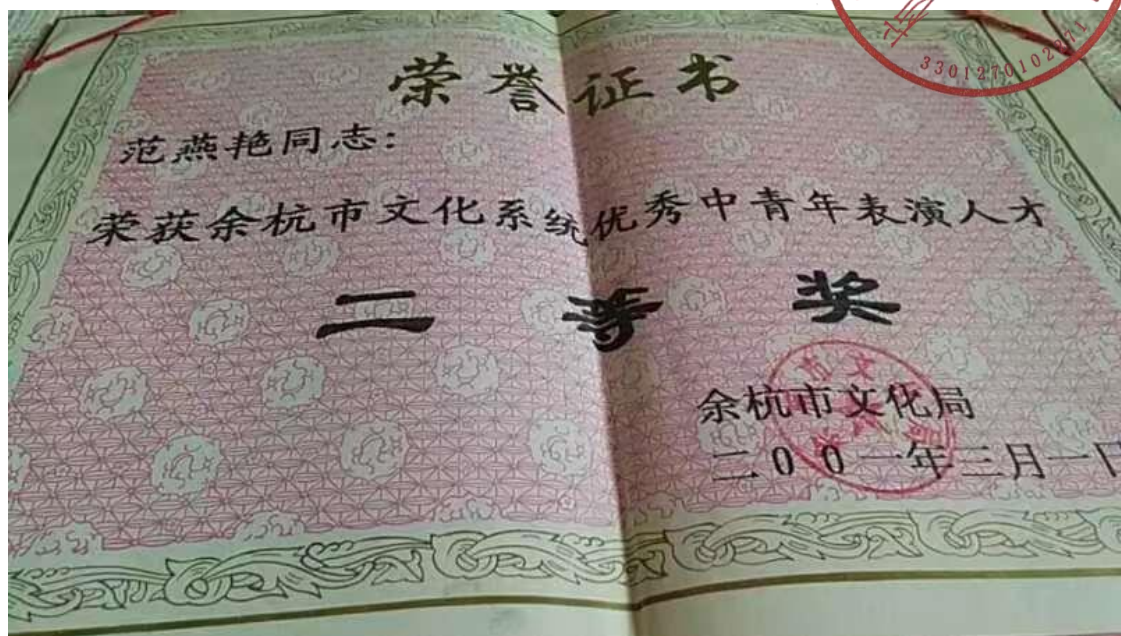 3301270102271
荣誉证书
范燕艳同志:
荣获余杭市文化系统优秀中青年表演人才
二等奖
余杭市文化局
二00一年三月一日